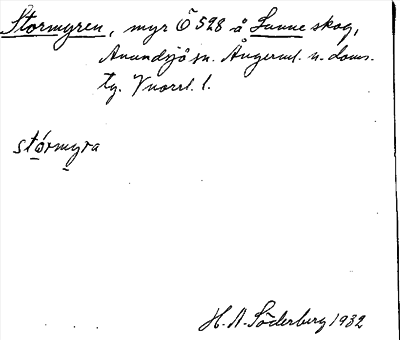 Stormyren, myr Ö 528 å Sunne skog,
Anundsjö sn. Ångerml. n. doms.
tg. Vnorrl. l.
stórmyra
H. A. Söderberg 1932